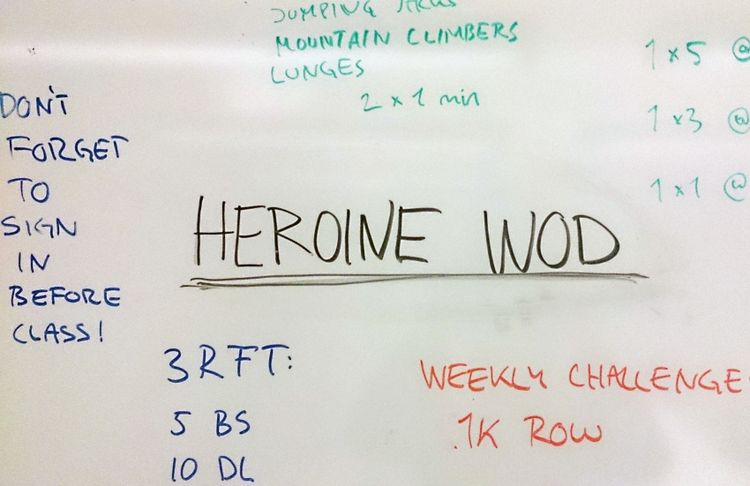 JUMPING JACKS
MOUNTAIN CLIMBERS
LUNGES
2 x 1 min
1 x 5 @
1 x 3 @
1 x 1 @
DON'T
FORGET
TO
SIGN
IN
BEFORE
CLASS!
HEROINE WOD
3 RFT:
5 BS
10 DL
WEEKLY CHALLENGE
1K ROW